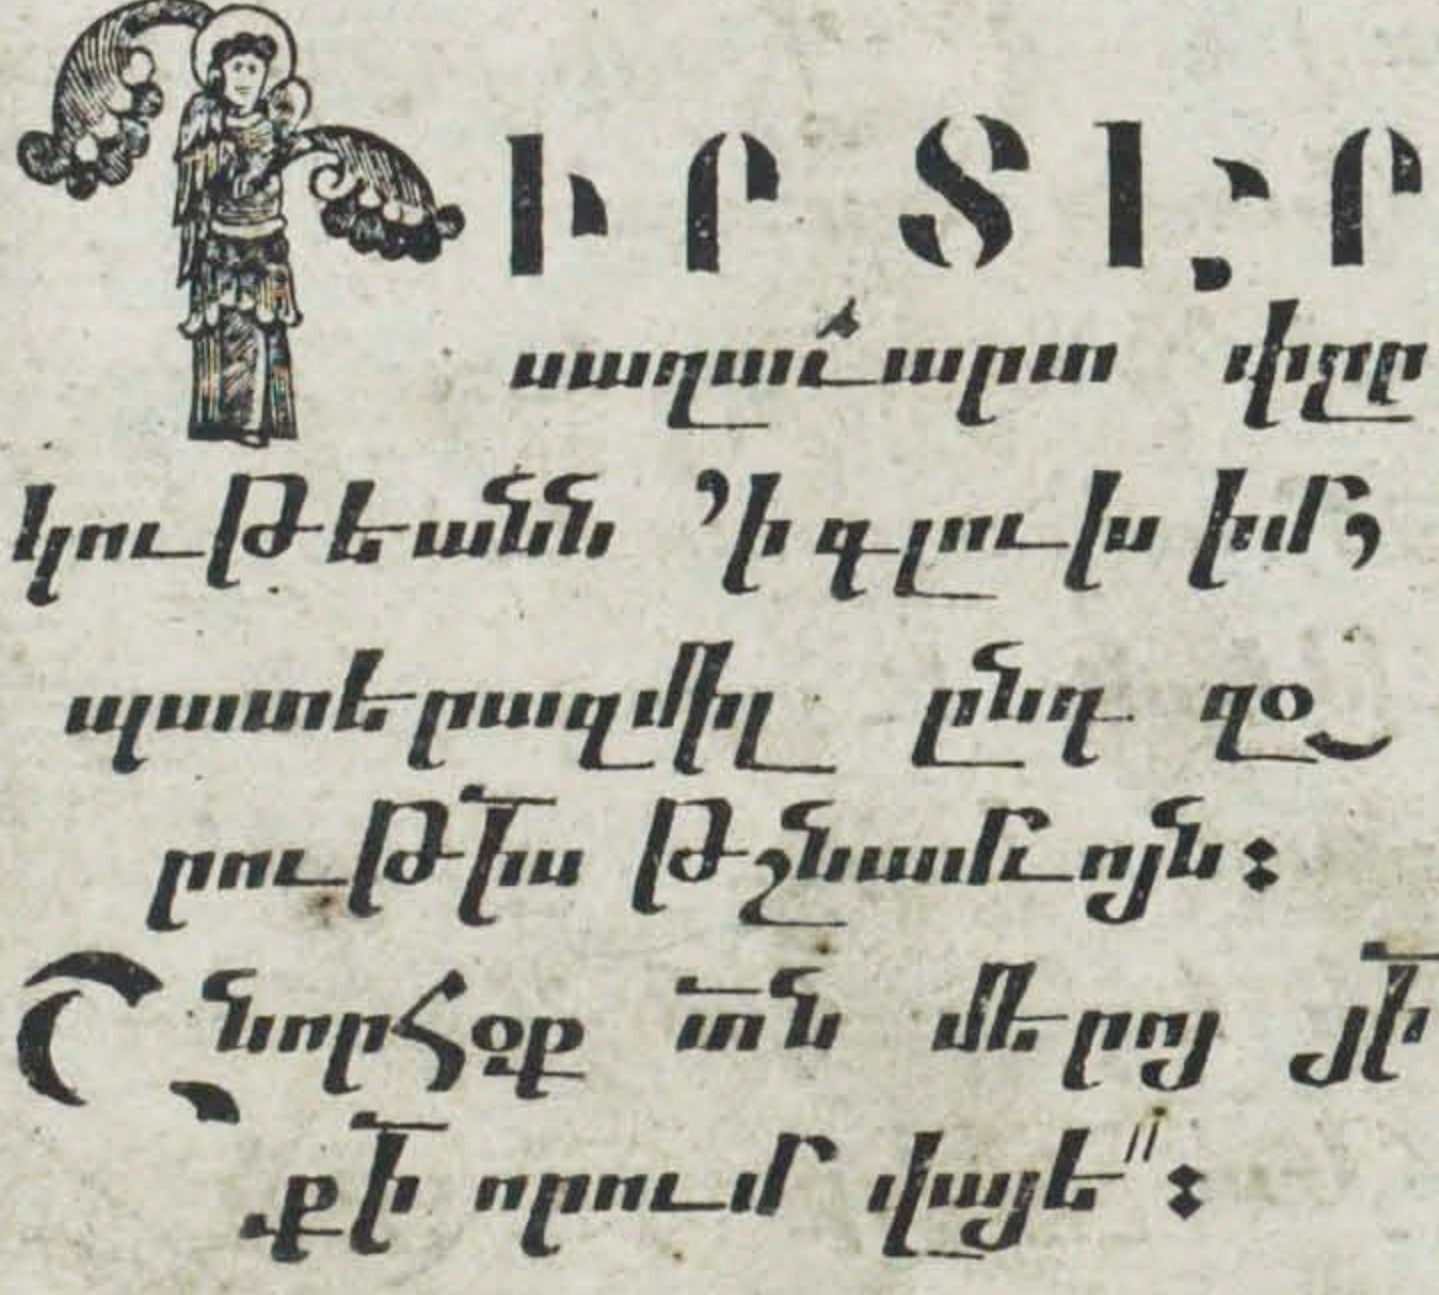 ԴԻՐ ՏԷՐ
սաղաւ՛արտ փըր
կութեանն ՚ի գլուխ իմ,
պատերազմիլ ընդ զօ֊
րութ՟իս թշնամւոյն։
Շնորհօք տ՟ն մերոյ յ՟ի
ք՟ի որում վայե"։